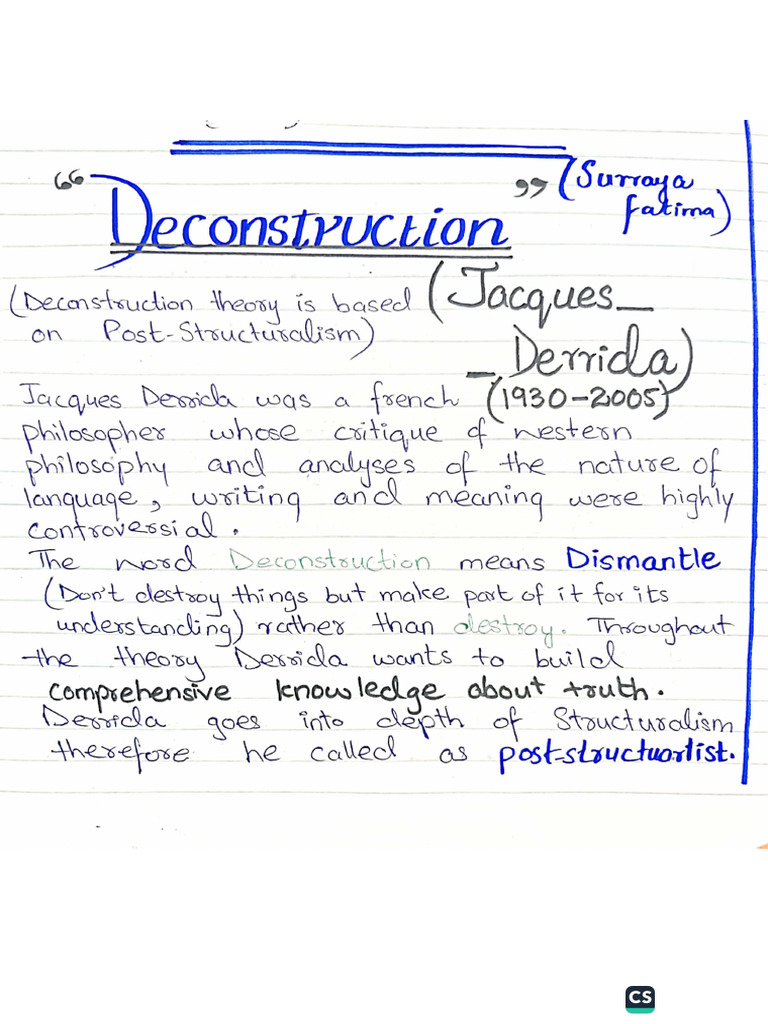 “Deconstruction” (Surraya
fatima)
(Deconstruction theory is based
on Post-Structuralism)
(Jacques_
_Derrida)
(1930-2005)
Jacques Derrida was a french
philosopher whose critique of western
philosophy and analyses of the nature of
language, writing and meaning were highly
controversial.
The word Deconstruction means Dismantle
(Don't destroy things but make part of it for its
understanding) rather than destroy. Throughout
the theory Derrida wants to build
comprehensive knowledge about truth.
Derrida goes into depth of Structuralism
therefore he called as post-structuorlist.
CS